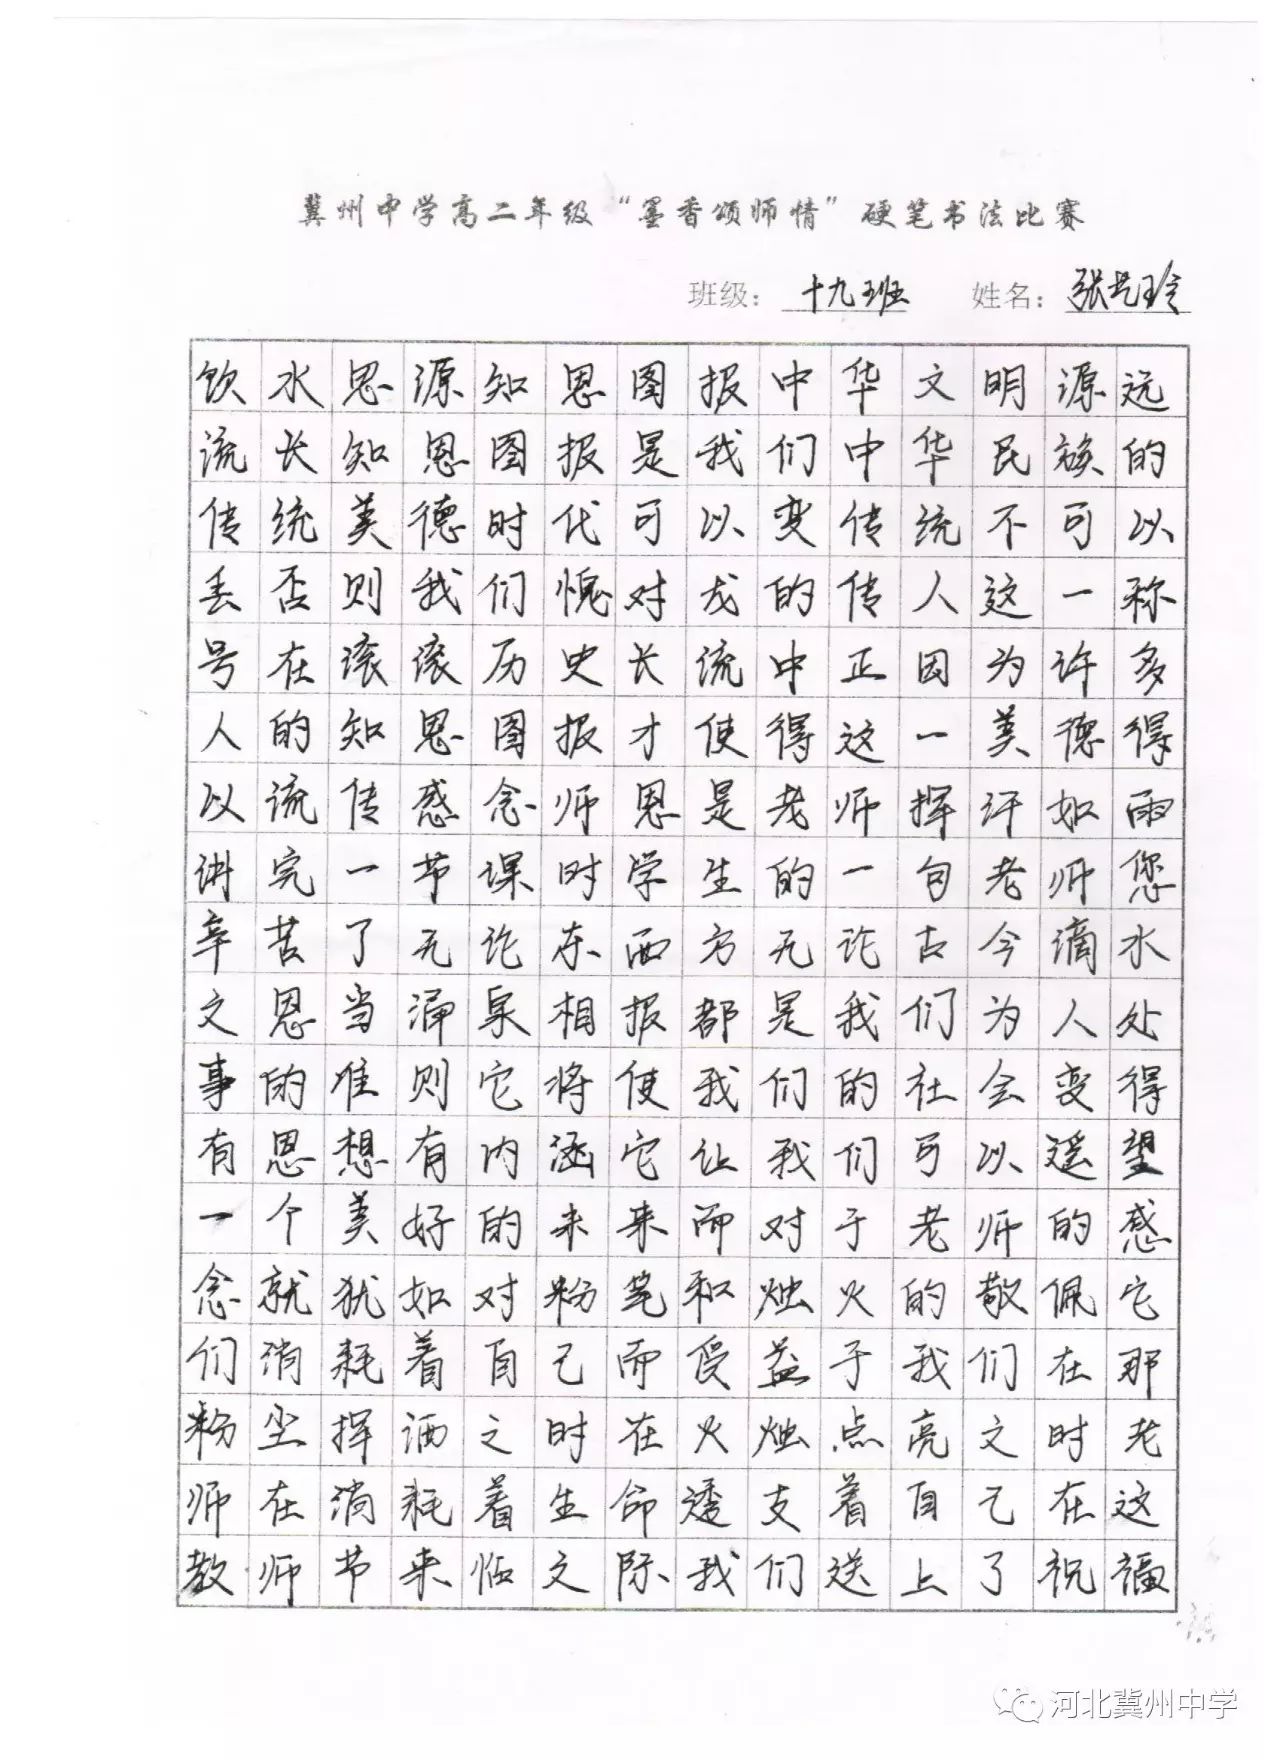 冀州中学高二年级“墨香颂师情”硬笔书法比赛
班级：十九班 姓名：张艺玲
饮水思源知恩图报中华文明源远
流长知恩图报是我们中华民族的
传统美德时代可以变传统不可以
丢否则我们愧对龙的传人这一称
号在滚滚历史长流中正因为许多
人的知恩图报才使得这一美德得
以流传感念师恩是老师挥汗如雨
讲完一节课时学生的一句老师您
辛苦了无论东西方无论古今滴水
之恩当涌泉相报都是我们为人处
事的准则它将使我们的社会变得
有思想有内涵它让我们可以遥望
一个美好的未来而对于老师的感
念就犹如对粉笔和烛火的敬佩它
们消耗着自己而受益于我们在那
粉尘挥洒之时在火烛点亮之时老
师在消耗着生命透支着自己在这
教师节来临之际我们送上了祝福
河北冀州中学